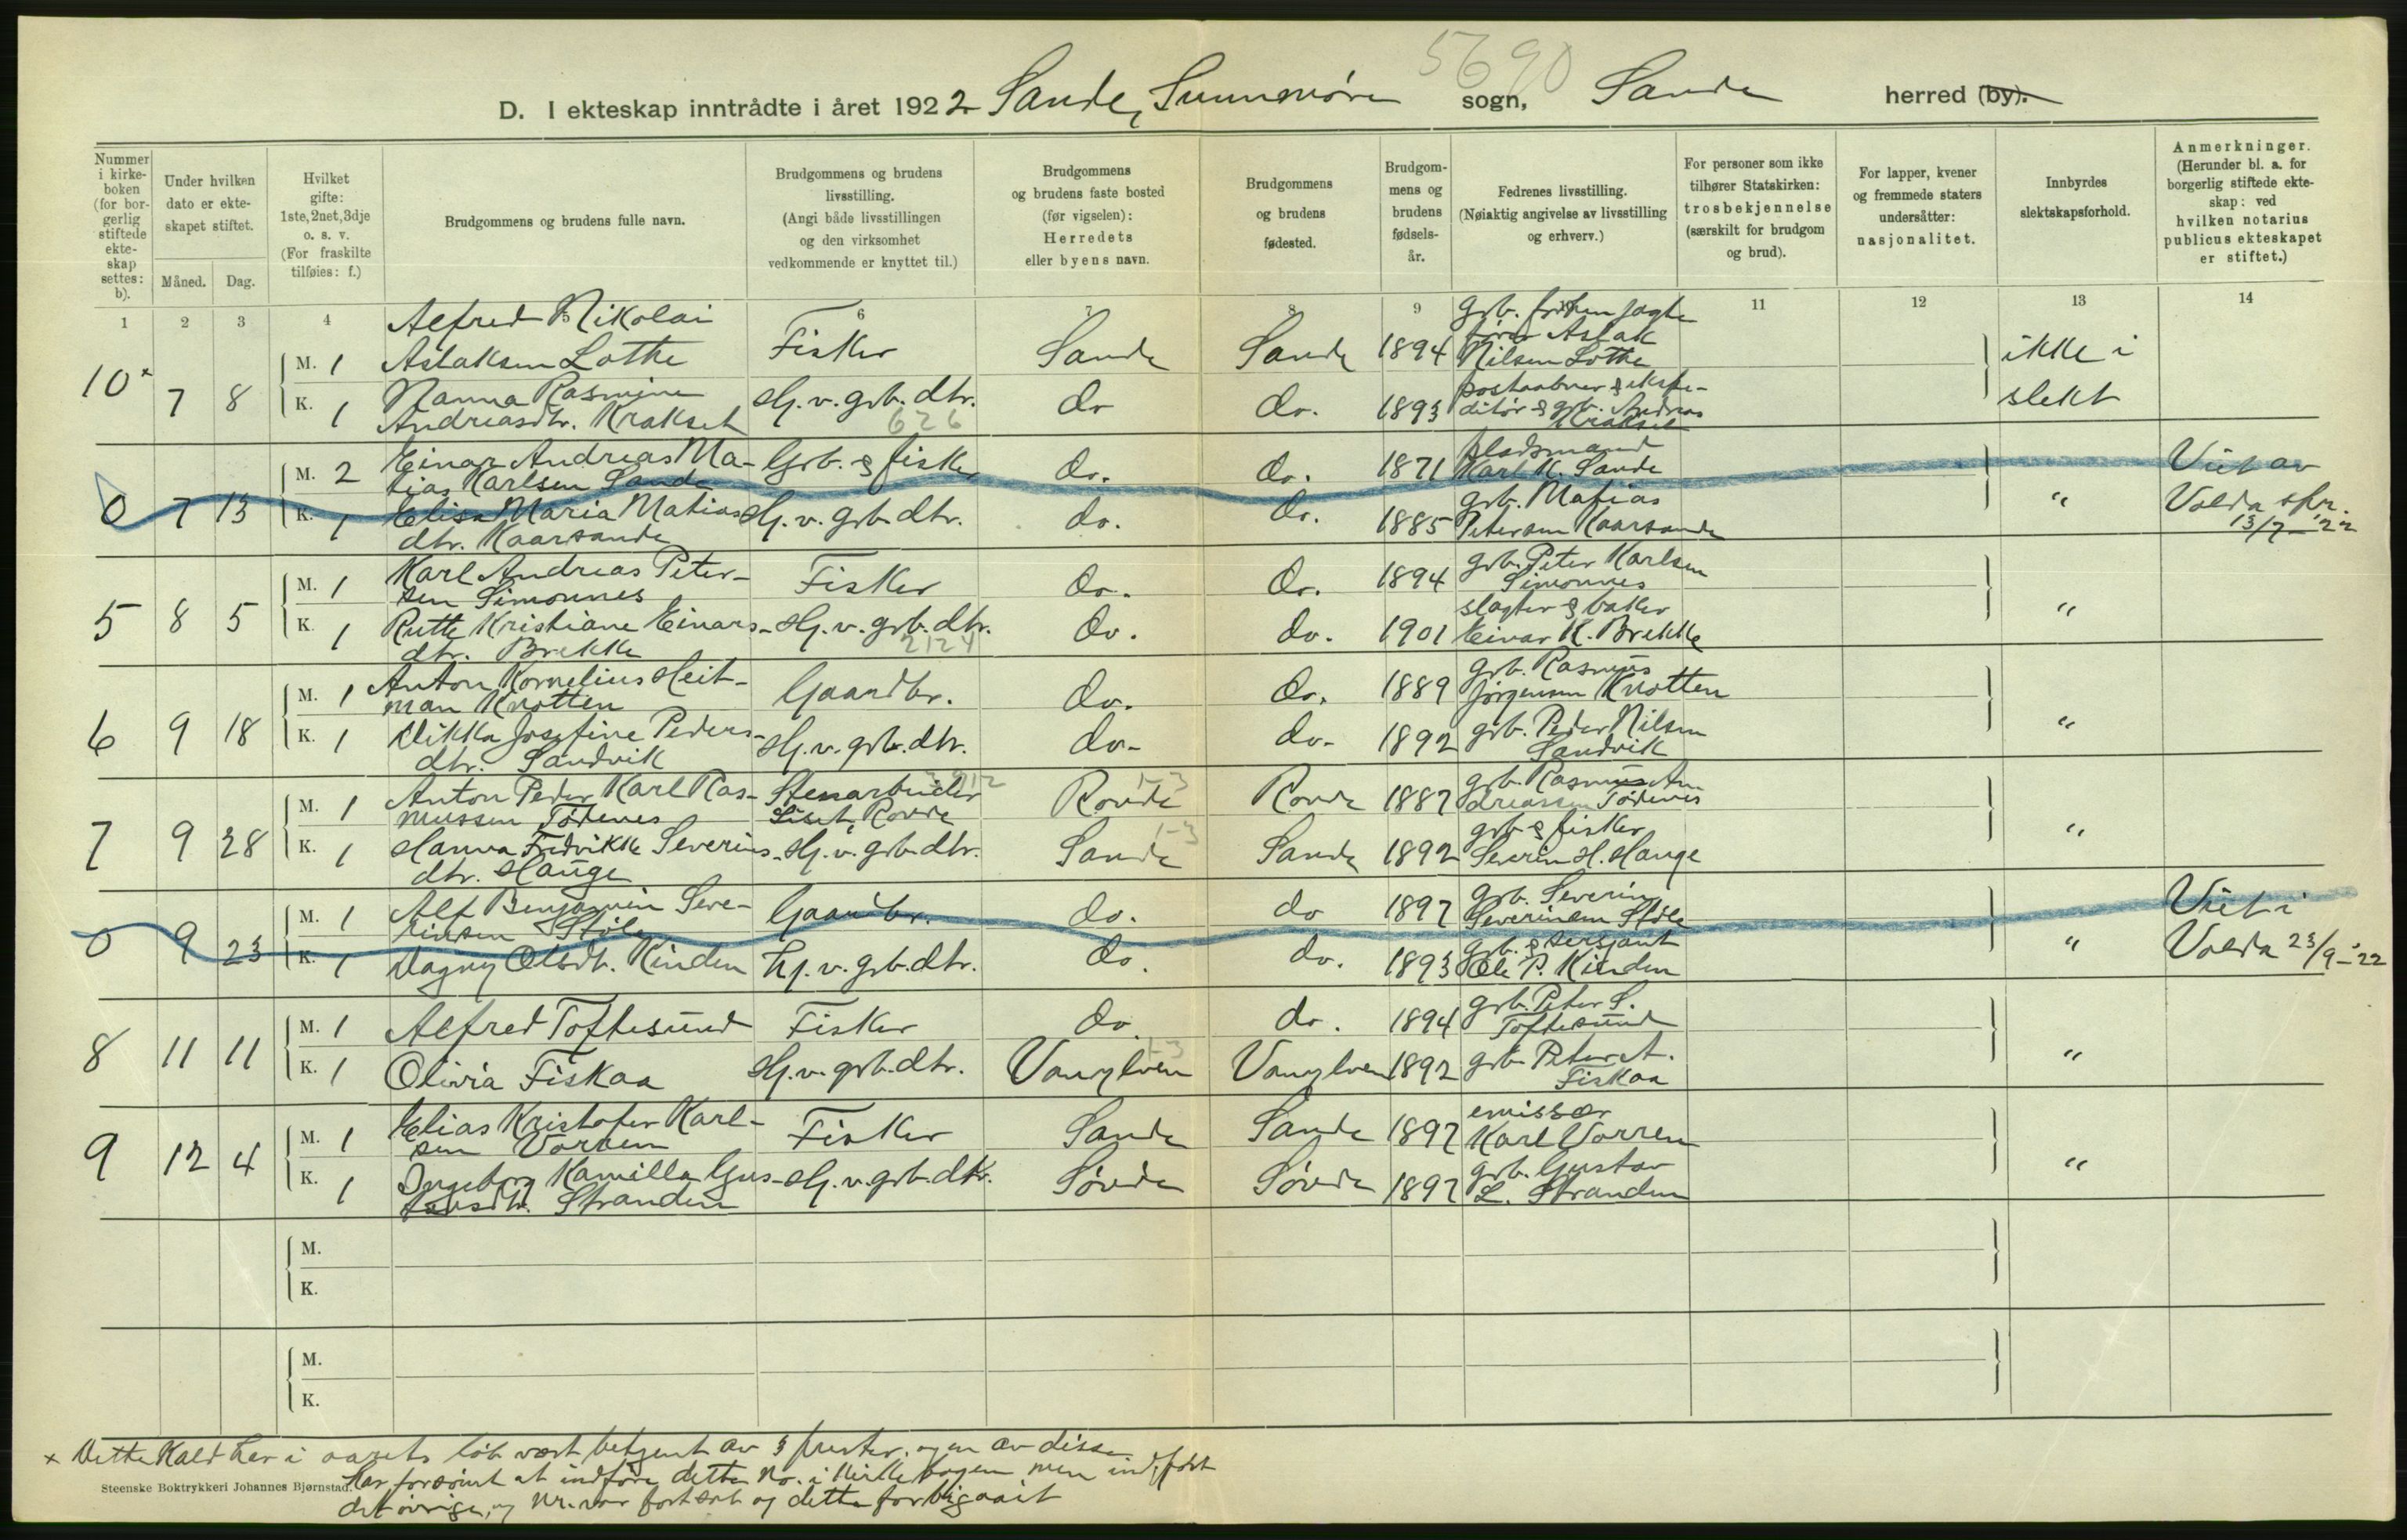 5690
D. I ekteskap inntrådte i året 1922 Sande, Sunnmøre sogn, Sande herred (by).
Nummer i kirke-boken (for bor-gerlig stiftede ekte-skap settes: b).
Under hvilken dato er ekte-skapet stiftet.
Måned. Dag.
Hvilket gifte: 1ste, 2net, 3dje o. s. v. (For fraskilte tilføies: f.)
Brudgommens og brudens fulle navn.
Brudgommens og brudens livsstilling. (Angi både livsstillingen og den virksomhet vedkommende er knyttet til.)
Brudgommens og brudens faste bosted (før vigselen): Herredets eller byens navn.
Brudgommens og brudens fødested.
Brudgom-mens og brudens fødsels-år.
Fedrenes livsstilling. (Nøiaktig angivelse av livsstilling og erhverv.)
For personer som ikke tilhører Statskirken: trosbekjennelse (særskilt for brudgom og brud).
For lapper, kvener og fremmede staters undersåtter: nasjonalitet.
Innbyrdes slektskapsforhold.
Anmerkninger. (Herunder bl. a. for borgerlig stiftede ekte-skap: ved hvilken notarius publicus ekteskapet er stiftet.)
1 2 3 4 5 6 7 8 9 10 11 12 13 14
10x 7 8
M. 1 Alfred Nikolai Aslaksen Lothe Fisker Sande Sande 1894 Aslak Nilsen Lothe ikke i slekt
K. 1 Nanna Rasmine Andreasdtr. Krakset Hj. v. grb. dtr. 626 do do. 1893 postaabner & ekspe-ditør & grb. Andreas Krakset
0 7 13
M. 2 Einar Andreas Ma-tias Karlsen Sande Grb. & fisker do. do. 1871 pladsmand Karl K. Sande " Viet av Volda spr. 13/7-'22
K. 1 Elisa Maria Matias dtr. Kaarsande Hj. v. grb. dtr. do. do. 1885 grb. Matias Petersen Kaarsande
5 8 5
M. 1 Karl Andreas Peter-sen Simonnes Fisker do. do. 1894 grb. Peter Karlsen Simonnes "
K. 1 Rutte Kristiane Einars-dtr. Brekke Hj. v. grb. dtr. 2124 do. do. 1901 slagter & baker Einar K. Brekke
6 9 18
M. 1 Anton Kornelius Heit-man Knotten Gaardbr. do. do. 1889 grb. Rasmus Jørgensen Knotten "
K. 1 Vikka Josefine Peders-dtr. Sandvik Hj. v. grb. dtr. do- do- 1892 grb. Peder Nilsen Sandvik
7 9 28
M. 1 Anton Peder Karl Ras-mussen Tødenes Stenarbeider Rovde Rovde Rovde 1887 grb. Rasmus An dreassen Tødenes "
K. 1 Hanna Fredrikke Severins-dtr. Hauge Hj. v. grb. dtr. Sande Sande 1892 grb & fisker Severin H. Hauge
0 9 23
M. 1 Alf Benjamin Seve-rinsen Støle Gaardbr. do. do 1897 grb. Severin Severinsen Støle " Viet i Volda 23/9-'22
K. 1 Dagny Olsdt. Kinden hj. v. grb. dtr. do. do. 1893 grb. & sersjant Ole P. Kinden
8 11 11
M. 1 Alfred Toftesund Fisker do do. 1894 grb. Peter S. Toftesund "
K. 1 Olivia Fiskaa Hj. v. grb. dtr. Vanylven Vanylven 1892 grb. Peter A. Fiskaa
9 12 4
M. 1 Elias Kristofer Karl-sen Vorren Fisker Sande Sande 1897 emissær Karl Vorren "
K. 1 Ingeborg Kamilla Gus-tavsdtr. Stranden Hj. v. grb. dtr. Søvde Søvde 1897 grb. Gustav L. Stranden
M.
K.
M.
K.
x Dette Kald har i aarets løb vært betjent av 3 prester, og en av disse
har forsømt at indføre dette No. i Kirkebogen men indført
Steenske Boktrykkeri Johannes Bjørnstad.
det øvrige, og Nr. var fortsat og dette forbigaait